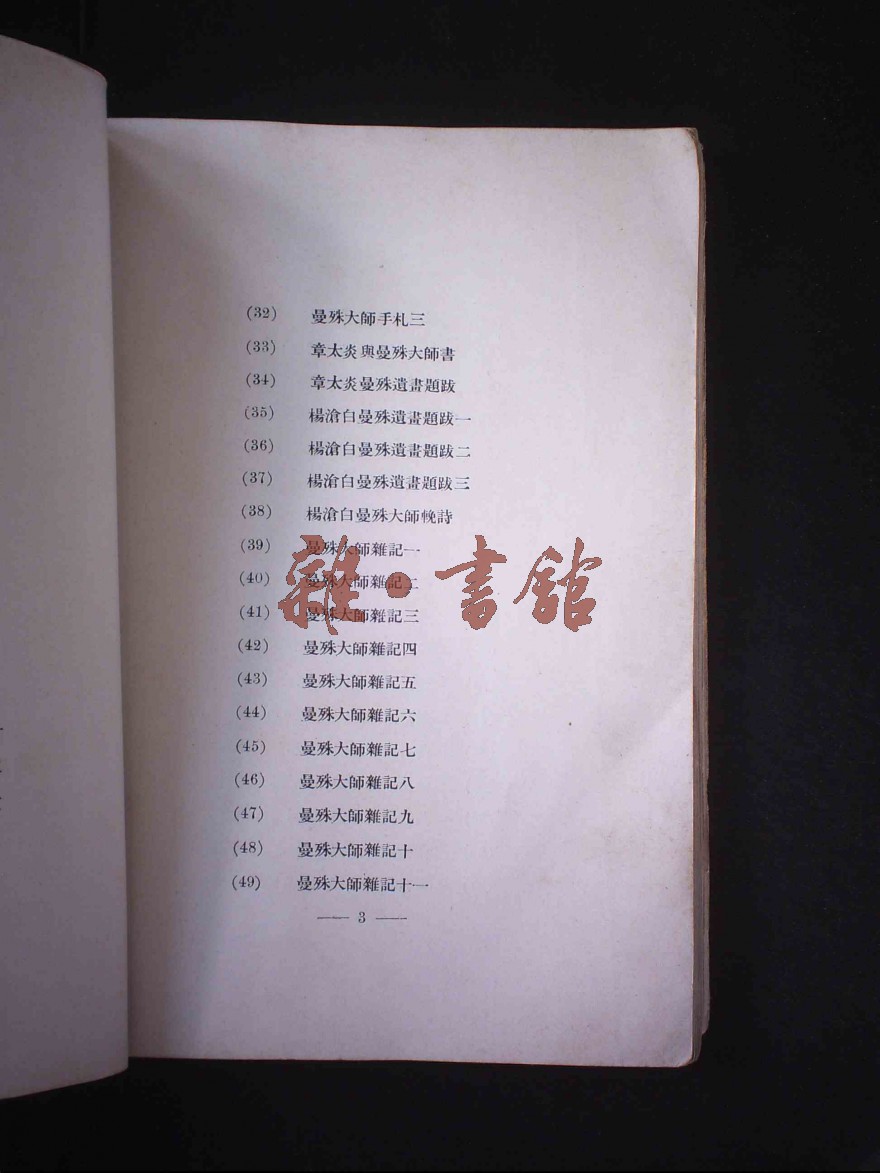 (32) 曼殊大師手札三
(33) 章太炎與曼殊大師書
(34) 章太炎曼殊遺畫題跋
(35) 楊滄白曼殊遺畫題跋一
(36) 楊滄白曼殊遺畫題跋二
(37) 楊滄白曼殊遺畫題跋三
(38) 楊滄白曼殊大師輓詩
(39) 曼殊大師雜記一
(40) 曼殊大師雜記二
(41) 曼殊大師雜記三
(42) 曼殊大師雜記四
(43) 曼殊大師雜記五
(44) 曼殊大師雜記六
(45) 曼殊大師雜記七
(46) 曼殊大師雜記八
(47) 曼殊大師雜記九
(48) 曼殊大師雜記十
(49) 曼殊大師雜記十一
— 3 —
雜·書館